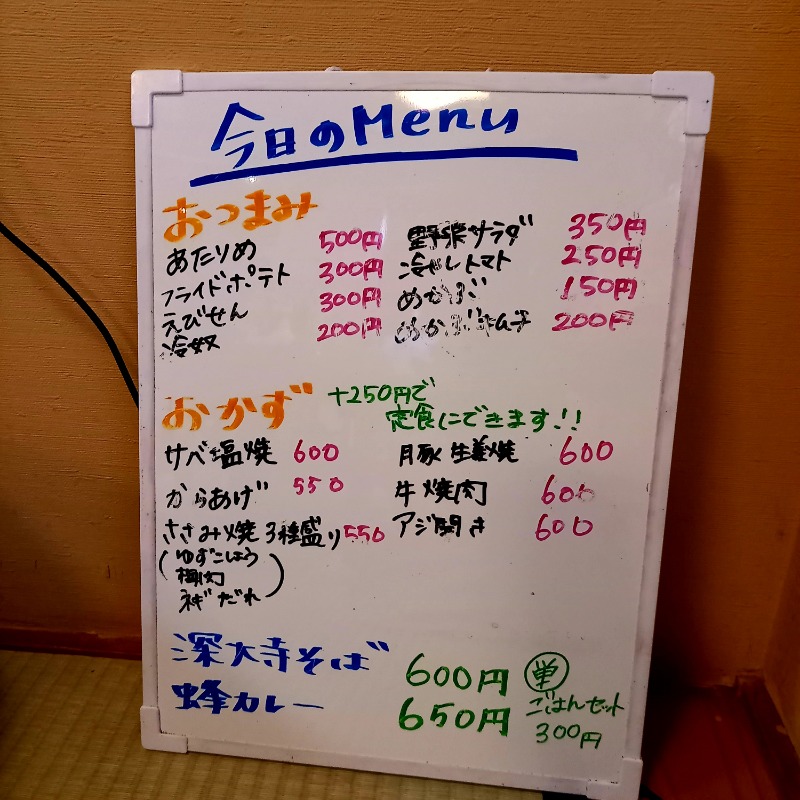 今日のMenu
おつまみ
あたりめ 500円
フライドポテト 300円
えびせん 300円
冷奴 200円
野菜サラダ 350円
冷やしトマト 250円
めかぶ 150円
めかぶキムチ 200円
おかず +250円で
定食にできます!!
サバ塩焼 600
からあげ 550
ささみ焼 3種盛り 550
(ゆずこしょう
梅肉
ネギだれ)
豚生姜焼 600
牛焼肉 600
アジ開き 600
深大寺そば 600円
蜂カレー 650円
単
ごはんセット
300円